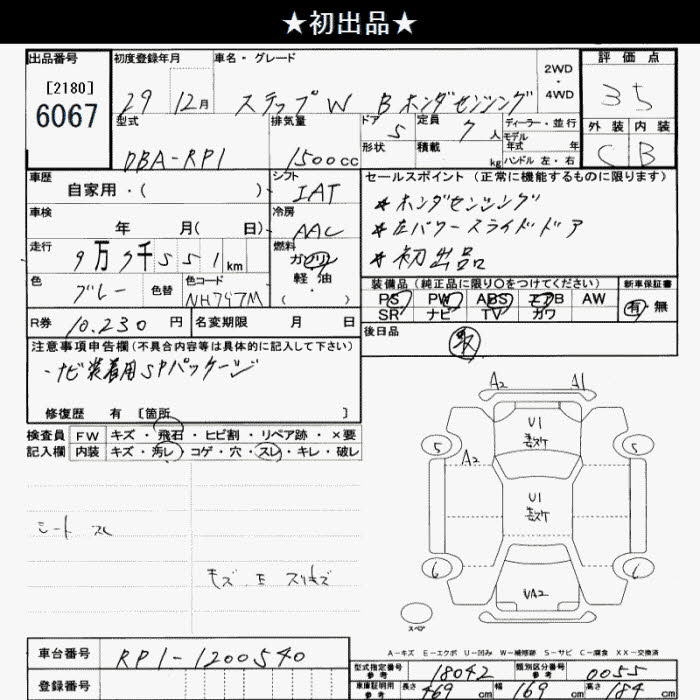 ★初出品★
出品番号 初度登録年月 車名・グレード 2WD・4WD 評価点
[2180]
6067
29 12月 ステップW Bホンダセンシング 35
型式 排気量 ドア 5 定員 7人 ディーラー・並行 外装 内装
形状 積載 kg モデル年式 年
ハンドル 左・右
DBA-RP1 1500cc C B
車歴 シフト セールスポイント(正常に機能するものに限ります)
自家用・( ) IAT
*ホンダセンシング
車検 冷房
年 月( 日) AAC
*左パワースライドドア
走行 燃料
9万7千551km ガソリン・軽油
*初出品
色 色替 色コード 装備品(純正品に限り○をつけてください) 新車保証書
グレー NH797M
PS PW ABS エアB AW 有・無
SR ナビ TV カワ
R券 10.230円 名変期限 月 日
後日品 取
注意事項申告欄(不具合内容等は具体的に記入して下さい)
・ナビ装着用SPパッケージ
修復歴 有 [箇所 ]
検査員 FW キズ・飛石・ヒビ割・リペア跡・×要
記入欄 内装 キズ・汚レ・コゲ・穴・スレ・キレ・破レ
A2 A1
U1
5 5
A2
U1
シート スレ
キズ E スリキズ
6 6
UA2
スペア
A-キズ E-エクボ U-凹み W-補修跡 S-サビ C-腐食 XX-交換済
車台番号 RP1-1200540
登録番号
型式指定番号 参考 18042 類別区分番号 参考 0055
車庫証明用 参考 長さ 469cm 幅 169cm 高さ 184cm